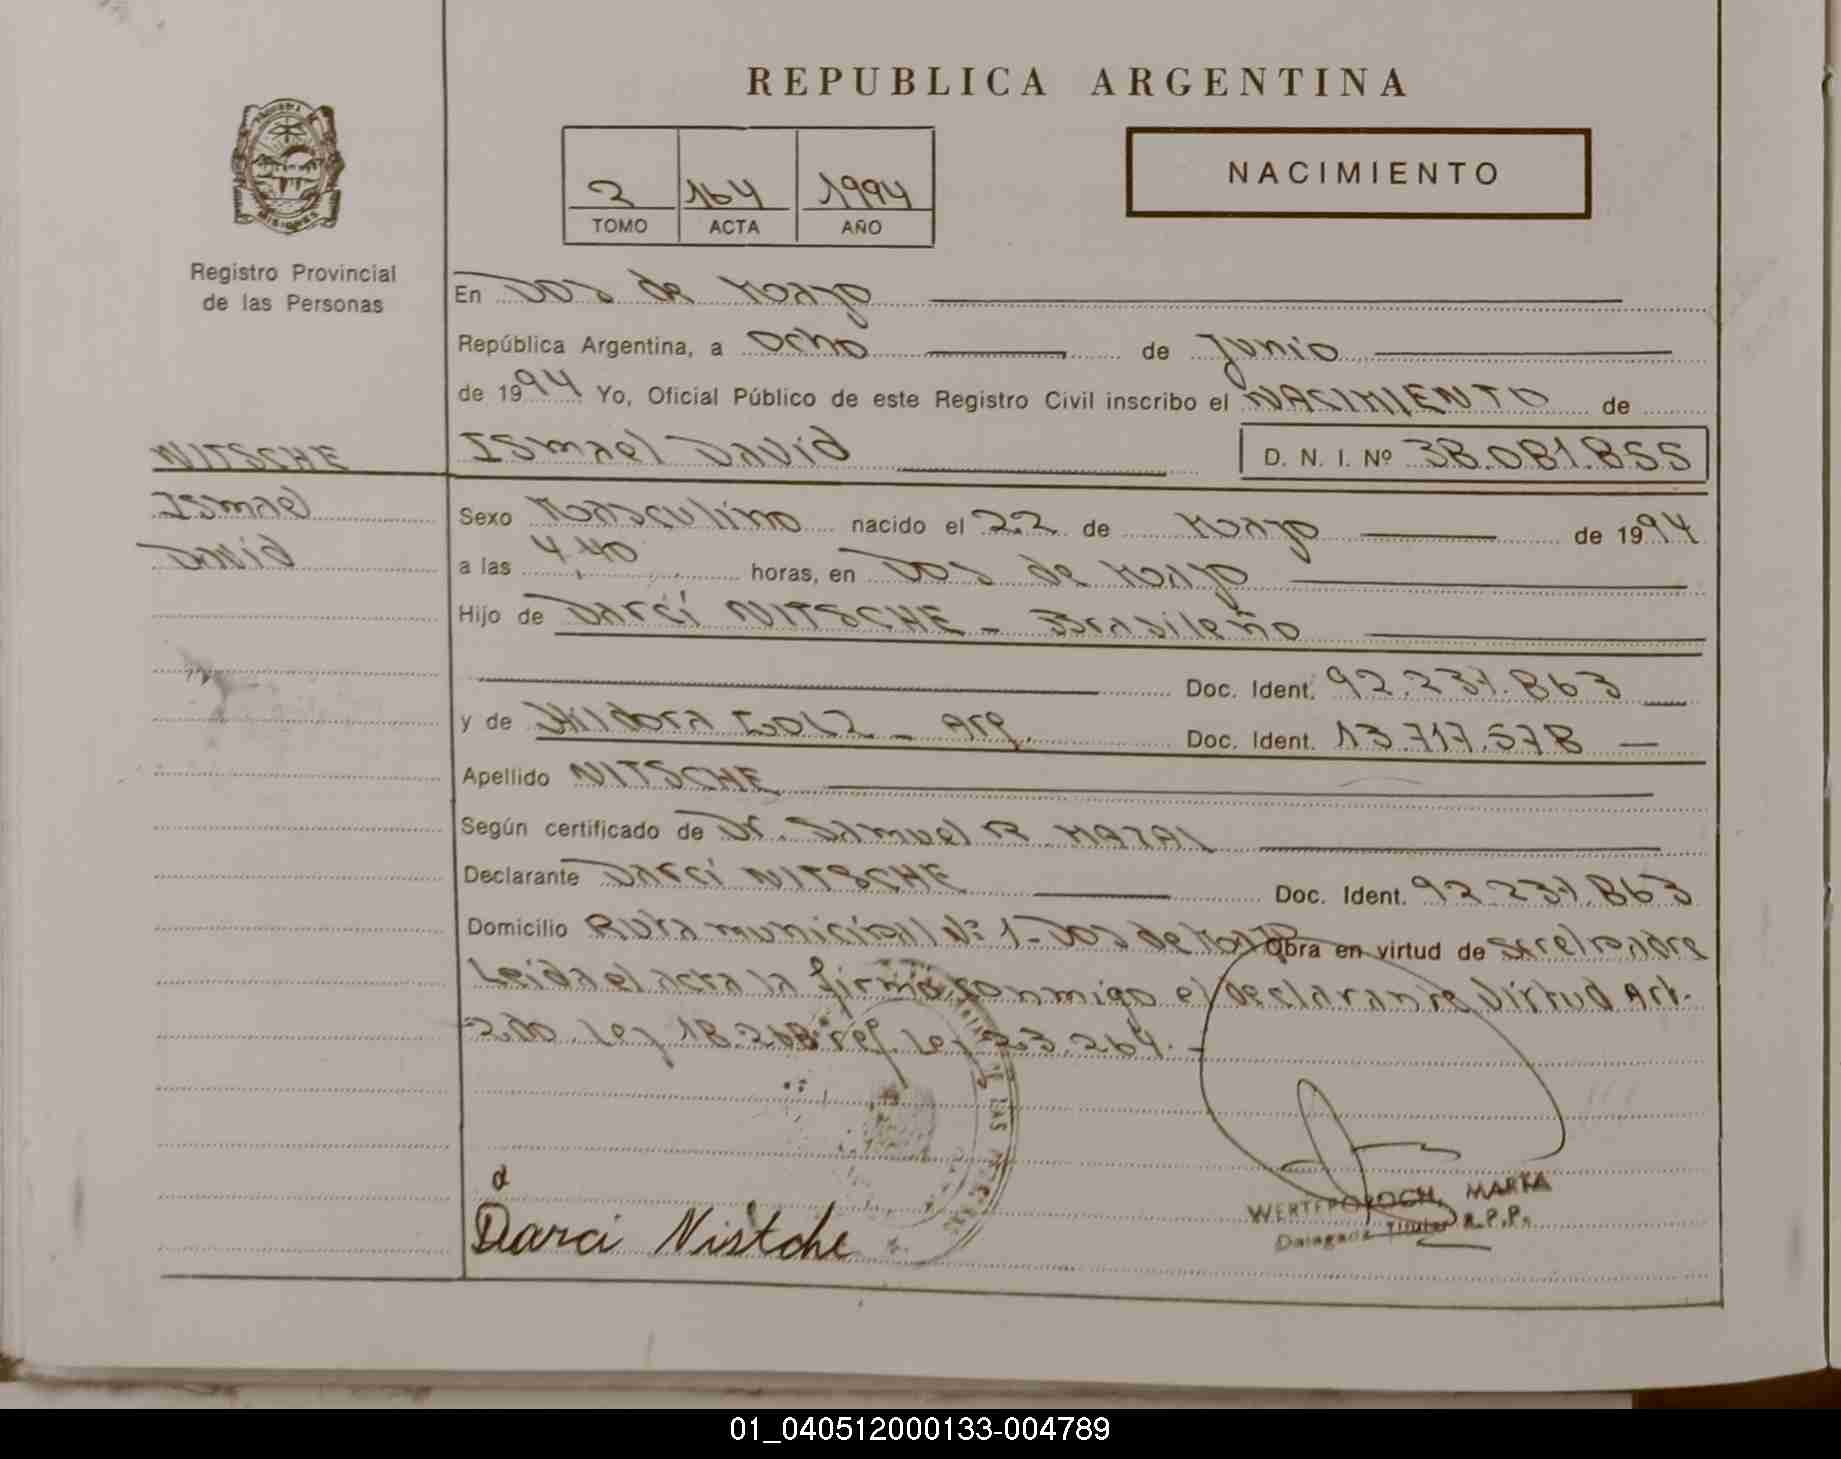 REPUBLICA ARGENTINA
NACIMIENTO
2 164 1994
TOMO ACTA AÑO
Registro Provincial
de las Personas
En Dos de Mayo
República Argentina, a Ocho de Junio
de 1994 Yo, Oficial Público de este Registro Civil inscribo el NACIMIENTO de
NITSCHE
Ismael
David
Ismael David D. N. I. Nº 38.081.855
Sexo Masculino nacido el 22 de Mayo de 1994
a las 4,40 horas, en Dos de Mayo
Hijo de Darci NITSCHE - Brasileño
Doc. Ident. 92.231.863
y de - Arg. Doc. Ident. 13.717.578
Apellido NITSCHE
Según certificado de Dr. Samuel R
Declarante Darci NITSCHE Doc. Ident. 92.231.863
Domicilio Ruta municipal Nº 1 - Dos de Mayo Obra en virtud de ser el padre
Leida el acta la firma conmigo el declarante Virtud Art.
2do. Ley 18.248 ref. Ley 23.264.-
DE LAS PERSONAS
d
Darci Nistche
MARTA
Titular R.P.P.
01_040512000133-004789